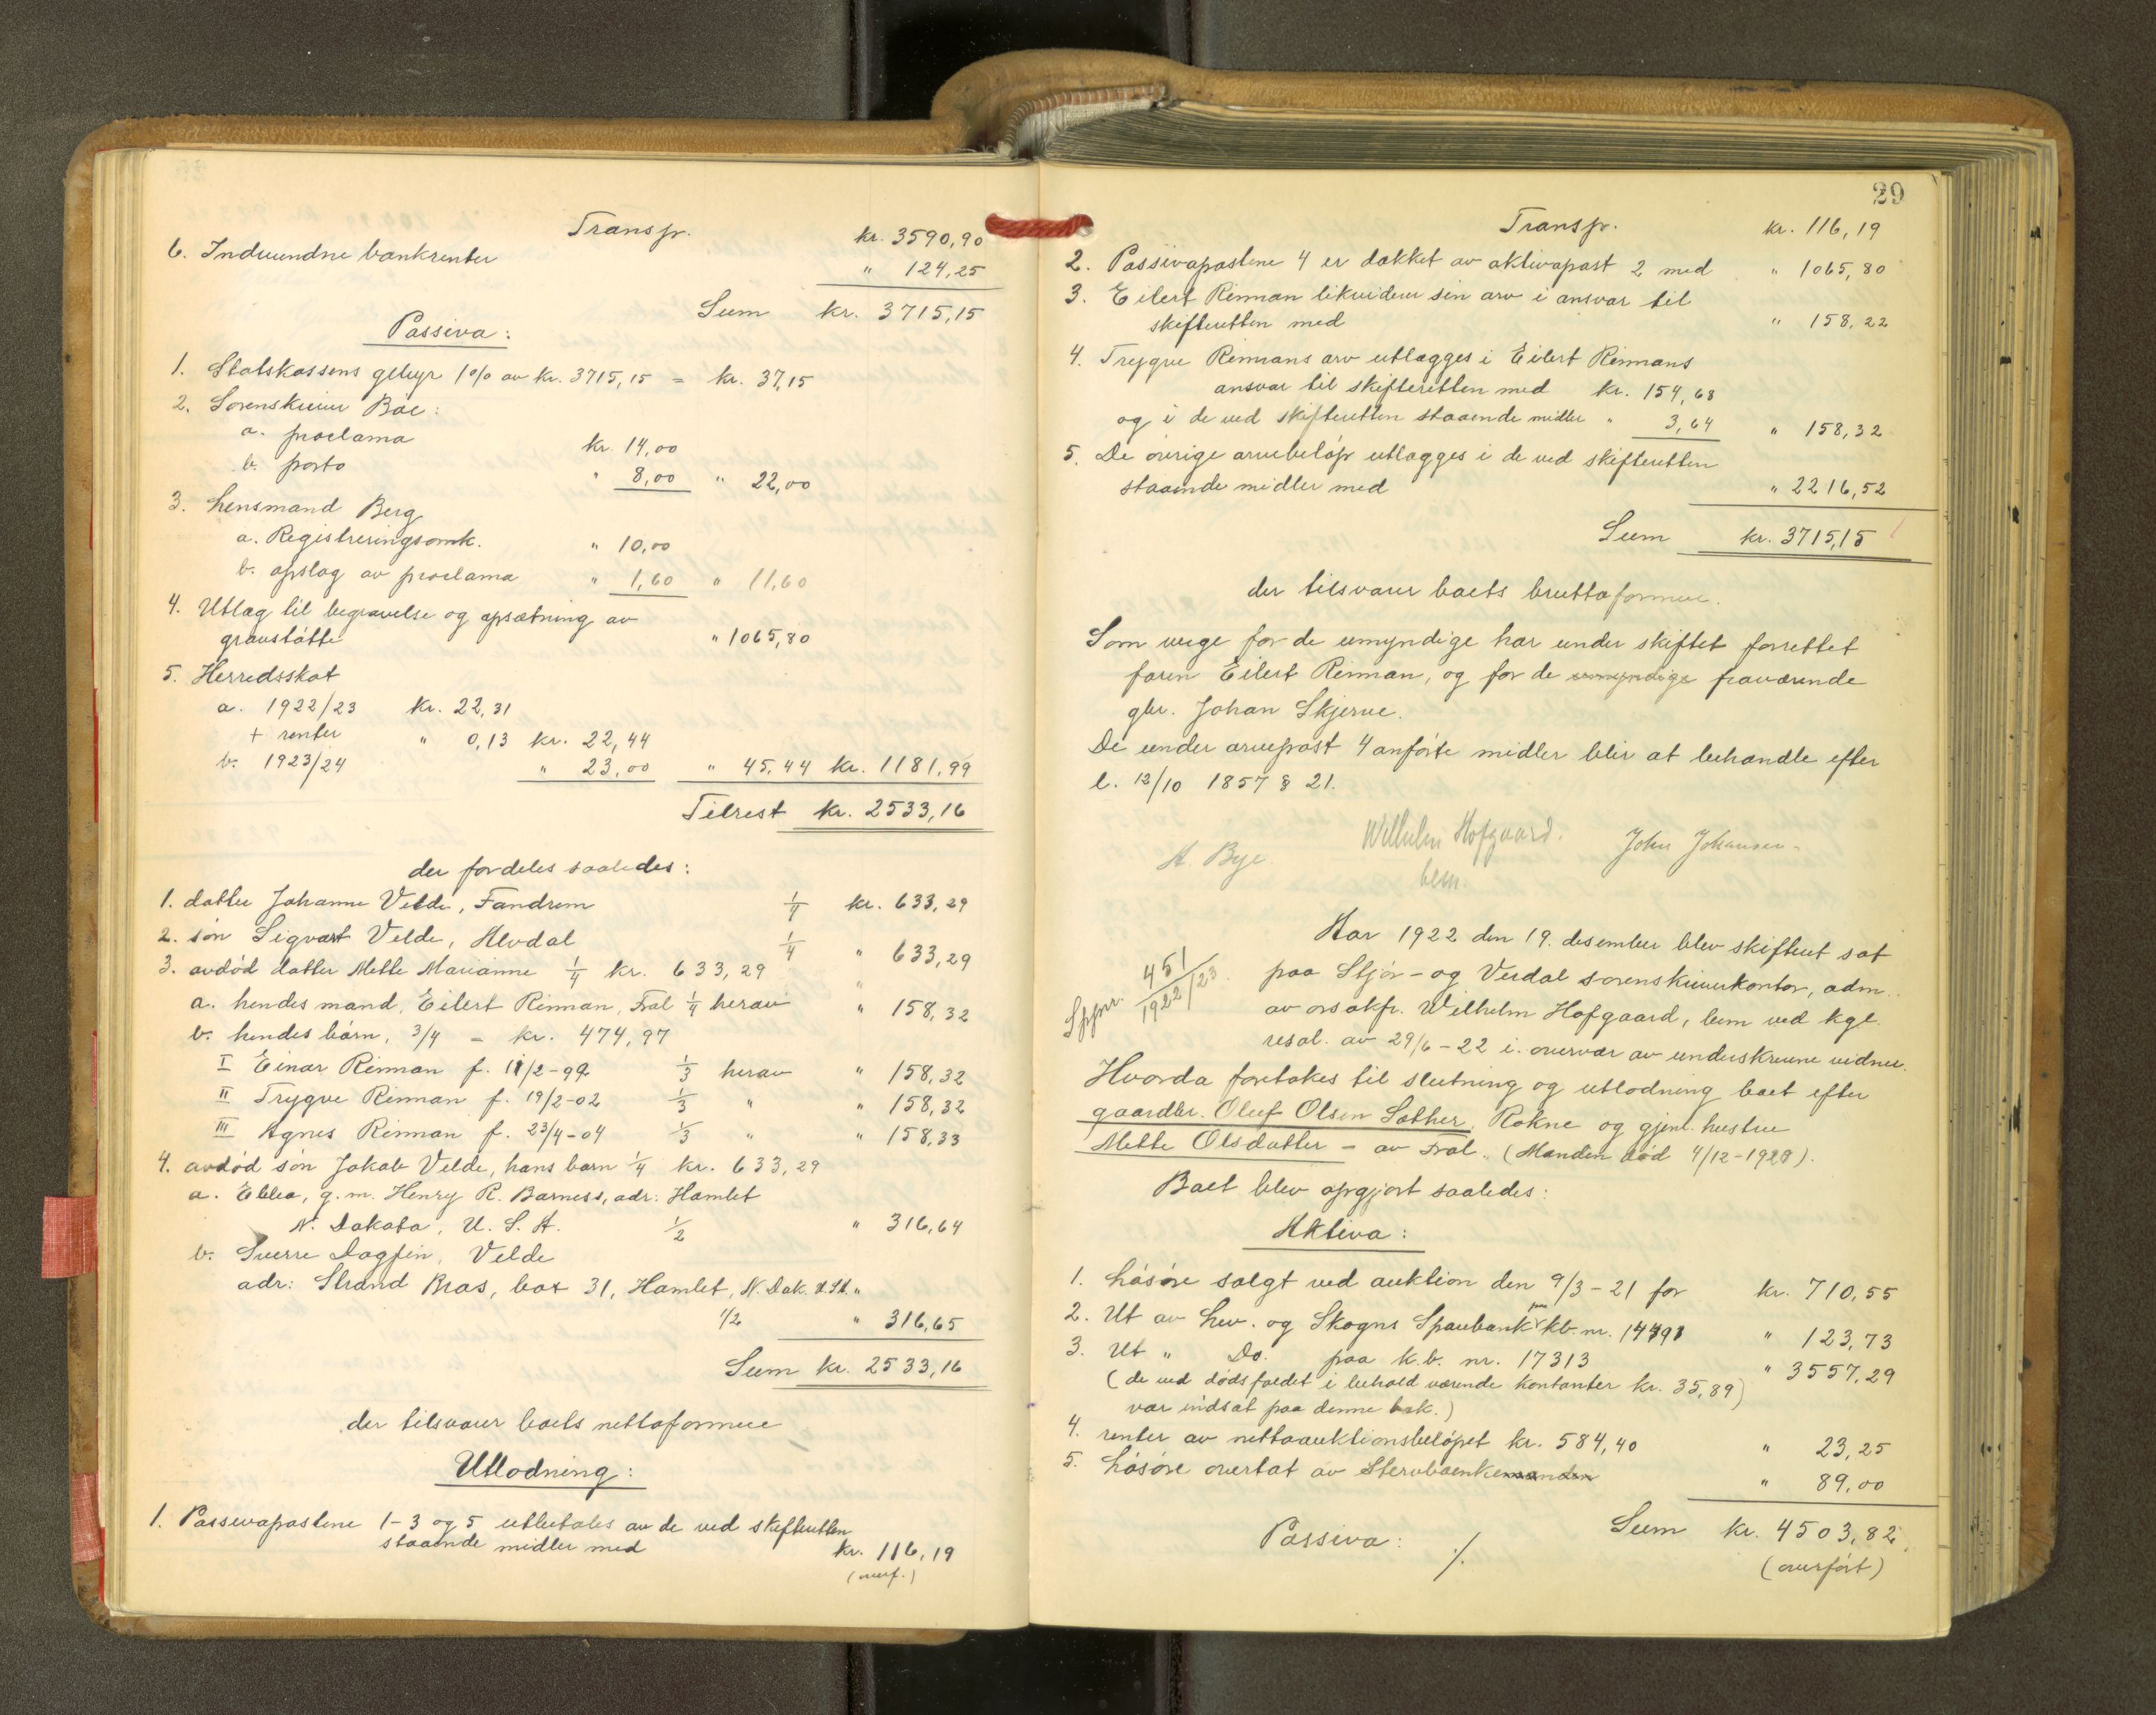 Transp. kr. 3590,90
6. Indvundne bankrenter " 124,25
Sum kr. 3715,15
Passiva:
1. Statskassens gebyr 1% av kr. 3715,15 = kr. 37,15
2. Sorenskriver Bäe:
a. proclama kr. 14,00
b. porto " 8,00 " 22,00
3. Lensmand Berg
a. Registreringsomk. " 10,00
b. opslag av proclama " 1,60 " 11,60
4. Utlæg til begravelse og opsætning av
gravstøtte " 1065,80
5. Herredsskat
a. 1922/23 kr. 22,31
+ renter " 0,13 kr. 22,44
b. 1923/24 " 23,00 " 45,44 kr. 1181,99
Tilrest kr. 2533,16
der fordeles saaledes:
1. datter Johanne Velde, Fandrem 1/4 kr. 633,29
2. søn Sigvart Velde, Alvdal 1/4 " 633,29
3. avdød datter Mette Marianne 1/4 kr. 633,29
a. hendes mand, Eilert Rinnan, Fral 1/4 herav " 158,32
b. hendes børn, 3/4 = kr. 474,97
I Einar Rinnan f. 11/2-99 1/3 herav " 158,32
II Trygve Rinnan f. 19/2-02 1/3 " " 158,32
III Agnes Rinnan f. 23/4-04 1/3 " " 158,33
4. avdød søn Jakob Velde, hans barn 1/4 kr. 633,29
a. Ebba, g.m. Henry R. Barness, adr: Hamlet
N. Dakota, U.S.A. 1/2 " 316,64
b. Sverre Dagfin, Velde
adr: Strand Bros, box 31, Hamlet, N. Dak. U.S.A. "
1/2 " 316,65
Sum kr. 2533,16
der tilsvarer boets nettoformue
Utlodning:
1. Passivapostene 1-3 og 5 utbetales av de ved skifteretten
staaende midler med kr. 116,19
(overf.)
29
Transp. kr. 116,19
2. Passivapostene 4 er dækket av aktivapost 2 med " 1065,80
3. Eilert Rinnan likviderer sin arv i ansvar til
skifteretten med " 158,22
4. Trygve Rinnans arv utlægges i Eilert Rinnans
ansvar til skifteretten med kr. 154,68
og i de ved skifteretten staaende midler " 3,64 " 158,32
5. De øvrige arvebeløp utlægges i de ved skifteretten
staaende midler med " 2216,52
Sum kr. 3715,15
der tilsvarer boets bruttoformue.
Som verge for de umyndige har under skiftet forrettet
faren Eilert Rinnan, og for de umyndige fraværende
gbr. Johan Skjerve.
De under arvepost 4 anførte midler blir at behandle efter
l. 12/10 1857 § 21.
Wilhelm Hofgaard. John Johansen
A. Bye bem.
Aar 1922 den 19. desember blev skifteret sat
Sppnr. 451 1922/23. paa Stjør- og Verdal sorenskriverkontor, adm.
av orsakfr. Wilhelm Hofgaard, bem ved kgl.
resol. av 29/6-22 i overvær av underskrevne vidner.
Hvorda foretokes til slutning og utlodning boet efter
gaardbr. Oluf Olsen Sæther, Rokne og gjenl. hustru
Mette Olsdatter - av Fral. (Manden død 4/12-1920).
Boet blev opgjort saaledes:
Aktiva:
1. Løsøre solgt ved auktion den 9/3-21 for kr. 710,55
2. Ut av Lev. og Skogns Sparebank paa kb. nr. 14791 " 123,73
3. Ut " Do. paa k.b. nr. 17313 " 3557,29
(de ved dødsfaldet i behold værende kontanter kr. 35,89)
var indsat paa denne bok.)
4. renter av nettoauktionsbeløpet kr. 584,40 " 23,25
5. Løsøre overtat av Stervboenkemanden " 89,00
Sum kr. 4503,82
Passiva: ./. (overført)